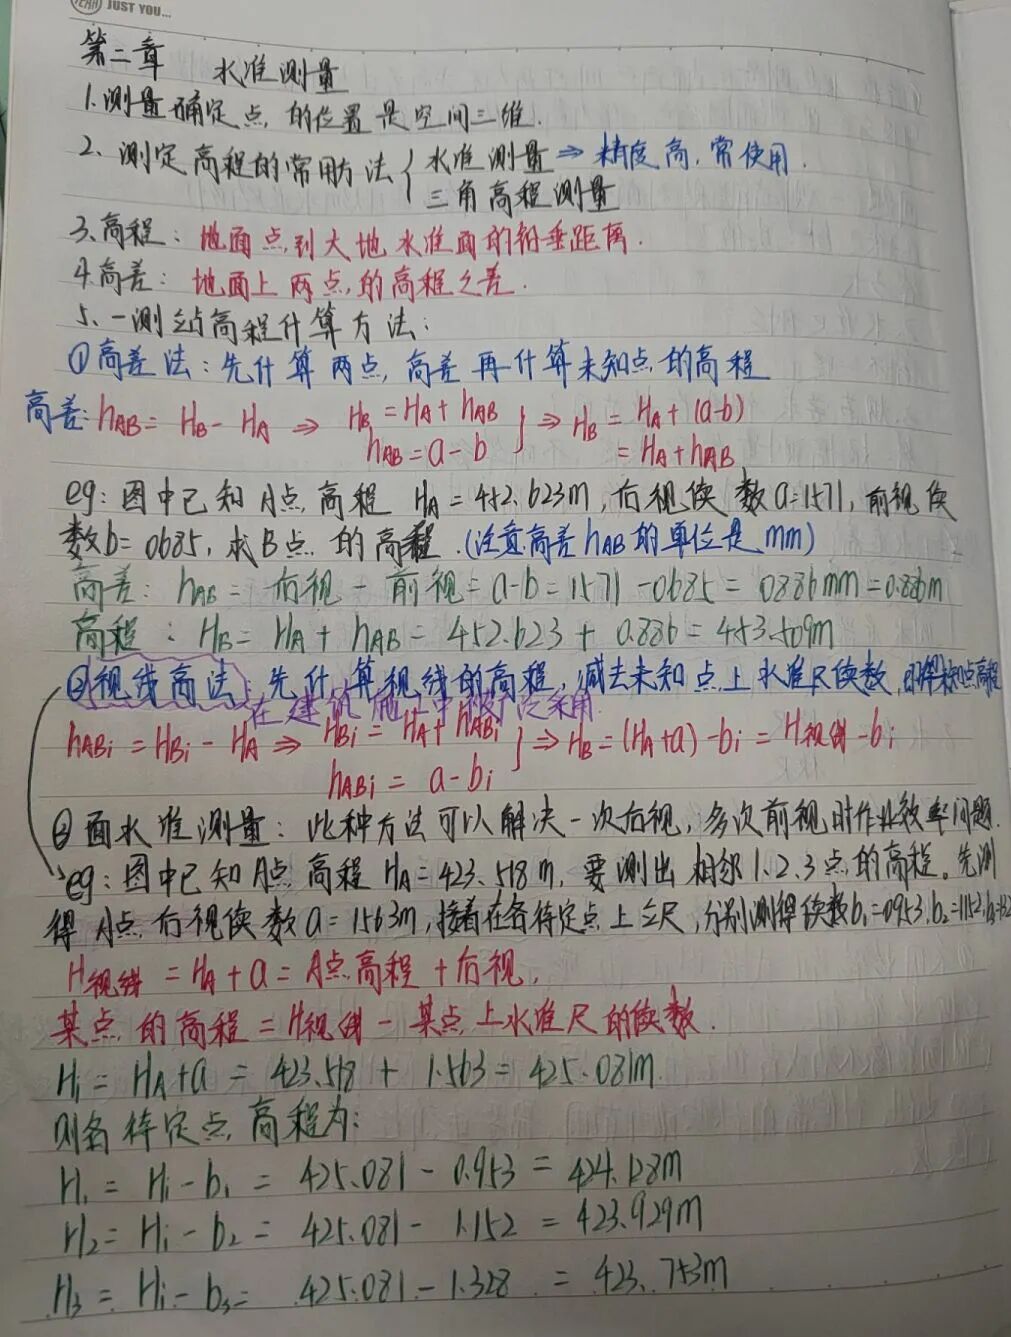 JUST YOU...
第二章 水准测量
1.测量确定点的位置是空间三维.
2、测定高程的常用方法{水准测量⇒精度高,常使用.
三角高程测量
3、高程:地面点到大地水准面的铅垂距离.
4.高差:地面上两点的高程之差.
5、一测站高程计算方法:
①高差法:先计算两点高差再计算未知点的高程
高差:hAB=HB-HA⇒HB=HA+hAB
hAB=a-b}⇒HB=HA+(a-b)
=HA+hAB
eg:图中已知A点高程 HA=452.623m,后视读数a=1571,前视读
数b=0685,求B点的高程.(注意高差hAB的单位是mm)
高差:hAB=后视-前视=a-b=1571-0685=0886mm=0.886m
高程:HB=HA+hAB=452.623+0.886=453.509m
②视线高法:先计算视线的高程,减去未知点上水准尺读数,
在建筑施工中被广泛采用.
hABi=HBi-HA⇒HBi=HA+hABi
hABi=a-bi}⇒HB=(HA+a)-bi=H视线-bi
③面水准测量:此种方法可以解决一次后视,多次前视时作业效率问题.
eg:图中已知A点高程HA=423.518m,要测出相邻1.2.3点的高程。先测
得A点后视读数a=1563m,接着在各待定点上立尺,分别测得读数b1=0953.b2=1152.
H视线=HA+a=A点高程+后视,
某点的高程=H视线-某点上水准尺的读数.
Hi=HA+a=423.518+1.563=425.081m.
则各待定点高程为:
H1=Hi-b1=425.081-0.953=424.128m
H2=Hi-b2=425.081-1.152=423.929m
H3=Hi-b3=425.081-1.328=423.753m